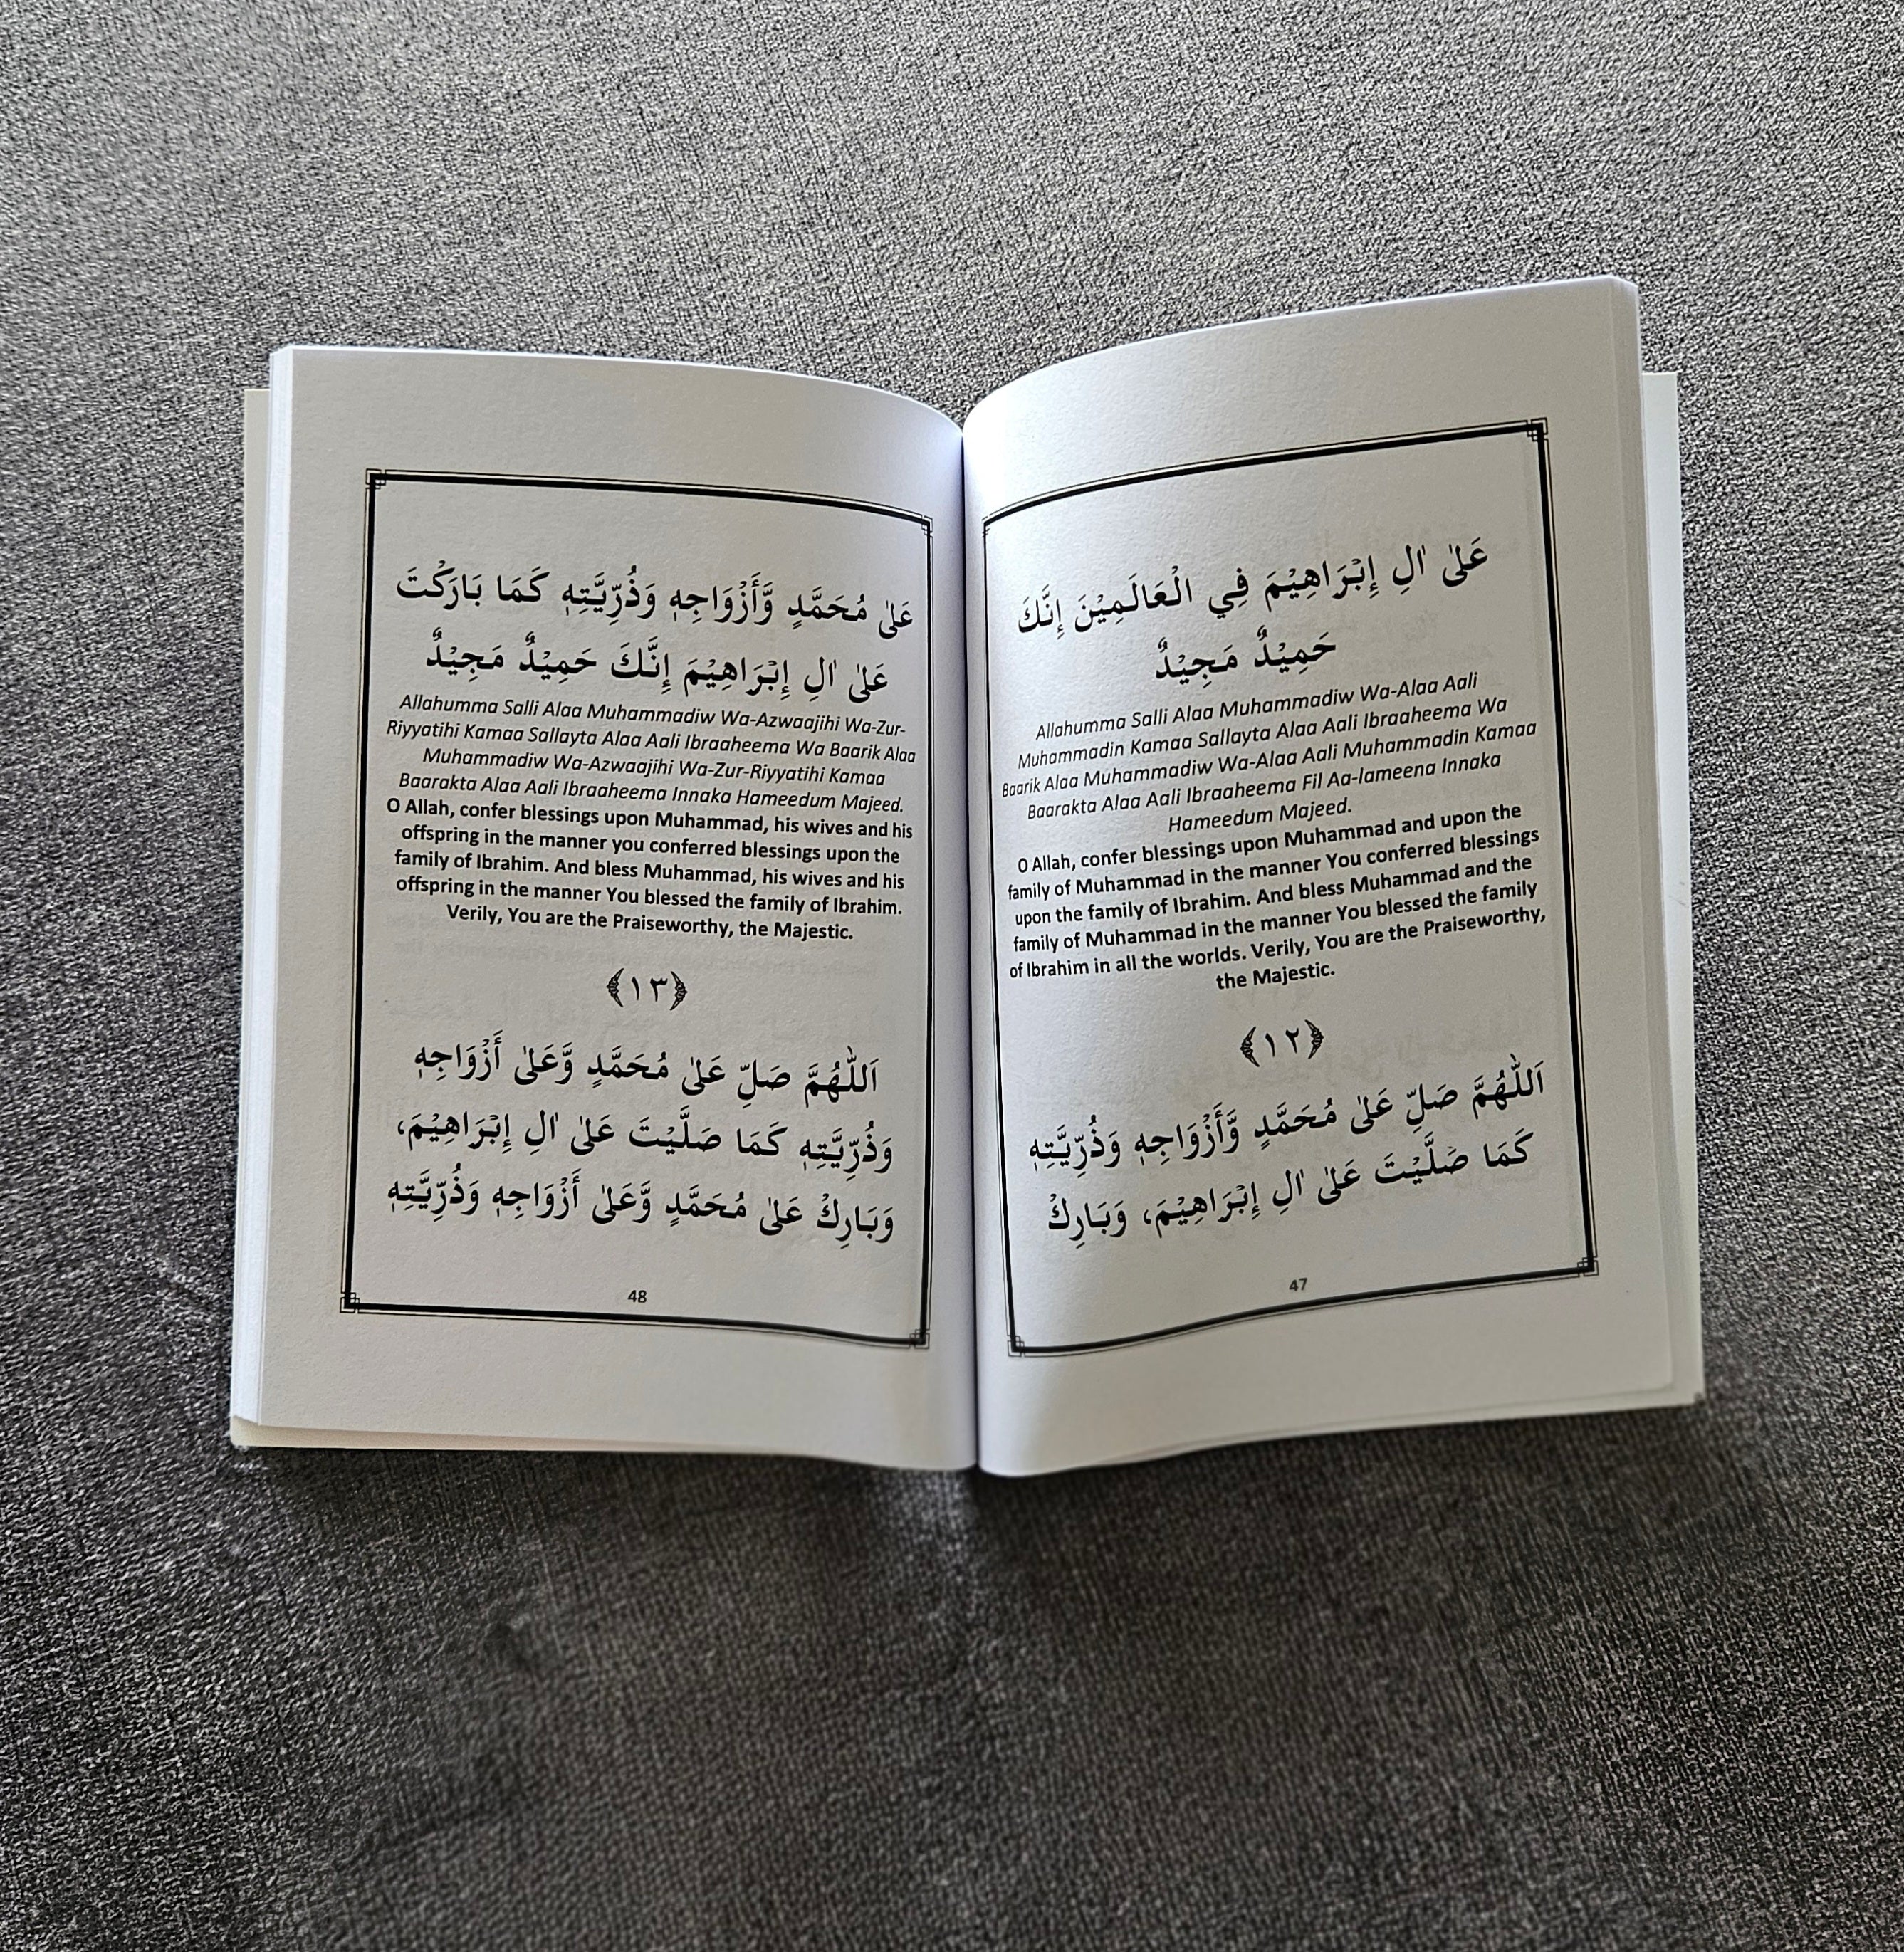 عَلىٰ اٰلِ إِبْرَاهِيْمَ فِي الْعَالَمِيْنَ إِنَّكَ
حَمِيْدٌ مَجِيْدٌ
Allahumma Salli Alaa Muhammadiw Wa-Alaa Aali
Muhammadin Kamaa Sallayta Alaa Aali Ibraaheema Wa
Baarik Alaa Muhammadiw Wa-Alaa Aali Muhammadin Kamaa
Baarakta Alaa Aali Ibraaheema Fil Aa-lameena Innaka
Hameedum Majeed.
O Allah, confer blessings upon Muhammad and upon the
family of Muhammad in the manner You conferred blessings
upon the family of Ibrahim. And bless Muhammad and the
family of Muhammad in the manner You blessed the family
of Ibrahim in all the worlds. Verily, You are the Praiseworthy,
the Majestic.
﴿١٢﴾
اَللّٰهُمَّ صَلِّ عَلىٰ مُحَمَّدٍ وَّأَزْوَاجِهٖ وَذُرِّيَّتِهٖ
كَمَا صَلَّيْتَ عَلىٰ اٰلِ إِبْرَاهِيْمَ، وَبَارِكْ
47
عَلىٰ مُحَمَّدٍ وَّأَزْوَاجِهٖ وَذُرِّيَّتِهٖ كَمَا بَارَكْتَ
عَلىٰ اٰلِ إِبْرَاهِيْمَ إِنَّكَ حَمِيْدٌ مَجِيْدٌ
Allahumma Salli Alaa Muhammadiw Wa-Azwaajihi Wa-Zur-
Riyyatihi Kamaa Sallayta Alaa Aali Ibraaheema Wa Baarik Alaa
Muhammadiw Wa-Azwaajihi Wa-Zur-Riyyatihi Kamaa
Baarakta Alaa Aali Ibraaheema Innaka Hameedum Majeed.
O Allah, confer blessings upon Muhammad, his wives and his
offspring in the manner you conferred blessings upon the
family of Ibrahim. And bless Muhammad, his wives and his
offspring in the manner You blessed the family of Ibrahim.
Verily, You are the Praiseworthy, the Majestic.
﴿١٣﴾
اَللّٰهُمَّ صَلِّ عَلىٰ مُحَمَّدٍ وَّعَلىٰ أَزْوَاجِهٖ
وَذُرِّيَّتِهٖ كَمَا صَلَّيْتَ عَلىٰ اٰلِ إِبْرَاهِيْمَ،
وَبَارِكْ عَلىٰ مُحَمَّدٍ وَّعَلىٰ أَزْوَاجِهٖ وَذُرِّيَّتِهٖ
48